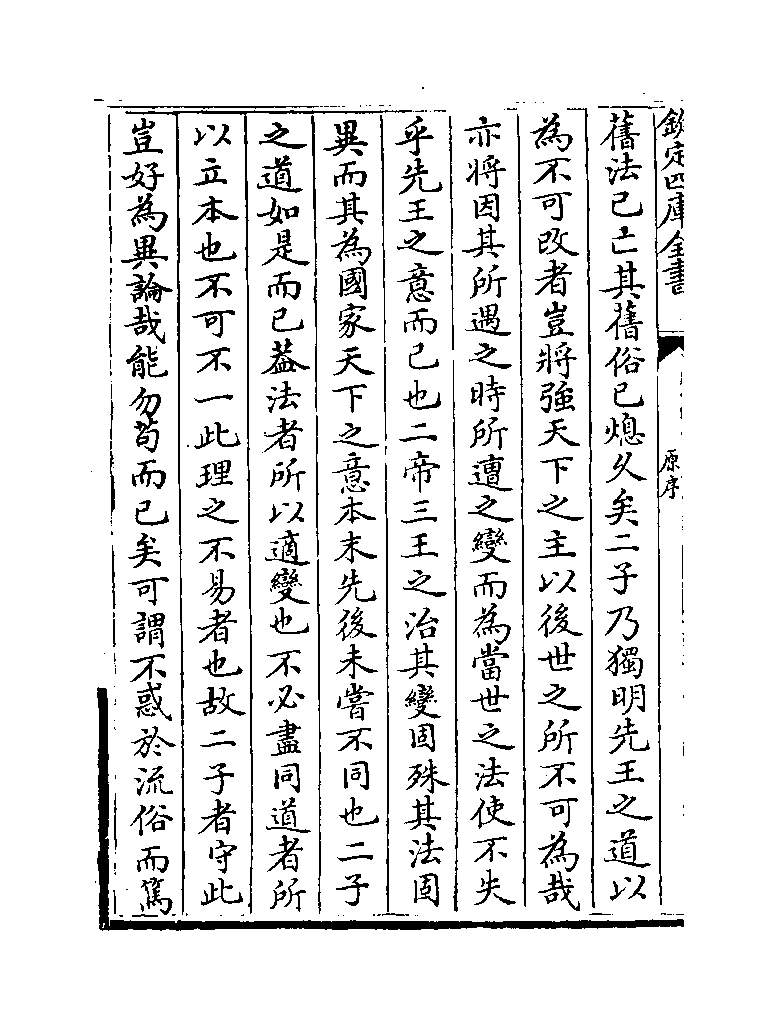 欽定四庫全書
原序
舊法已亡其舊俗已熄久矣二子乃獨明先王之道以
為不可改者豈將強天下之主以後世之所不可為哉
亦將因其所遇之時所遭之變而為當世之法使不失
乎先王之意而已也二帝三王之治其變固殊其法固
異而其為國家天下之意本末先後未嘗不同也二子
之道如是而已葢法者所以適變也不必盡同道者所
以立本也不可不一此理之不易者也故二子者守此
豈好為異論哉能勿茍而已矣可謂不惑於流俗而篤